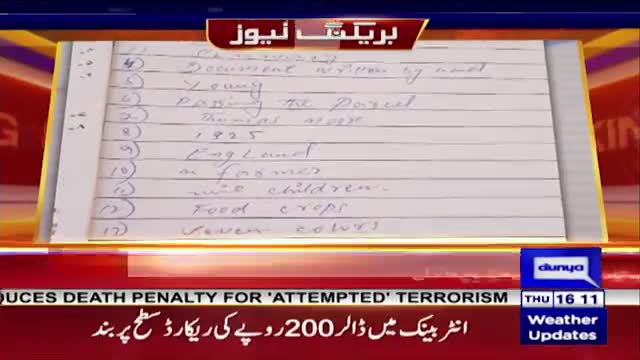 بریکنگ نیوز
4) Document written by hand
5) Young
6) Passing the Parcel
7) Thomas Moore
8) 1925
9) England
10) a farmer
11) nine children.
12) Food crops
13) colors
dunya
UCES DEATH PENALTY FOR 'ATTEMPTED' TERRORISM
THU 16 11
Weather
Updates
انٹر بینک میں ڈالر 200 روپے کی ریکارڈ سطح پر بند